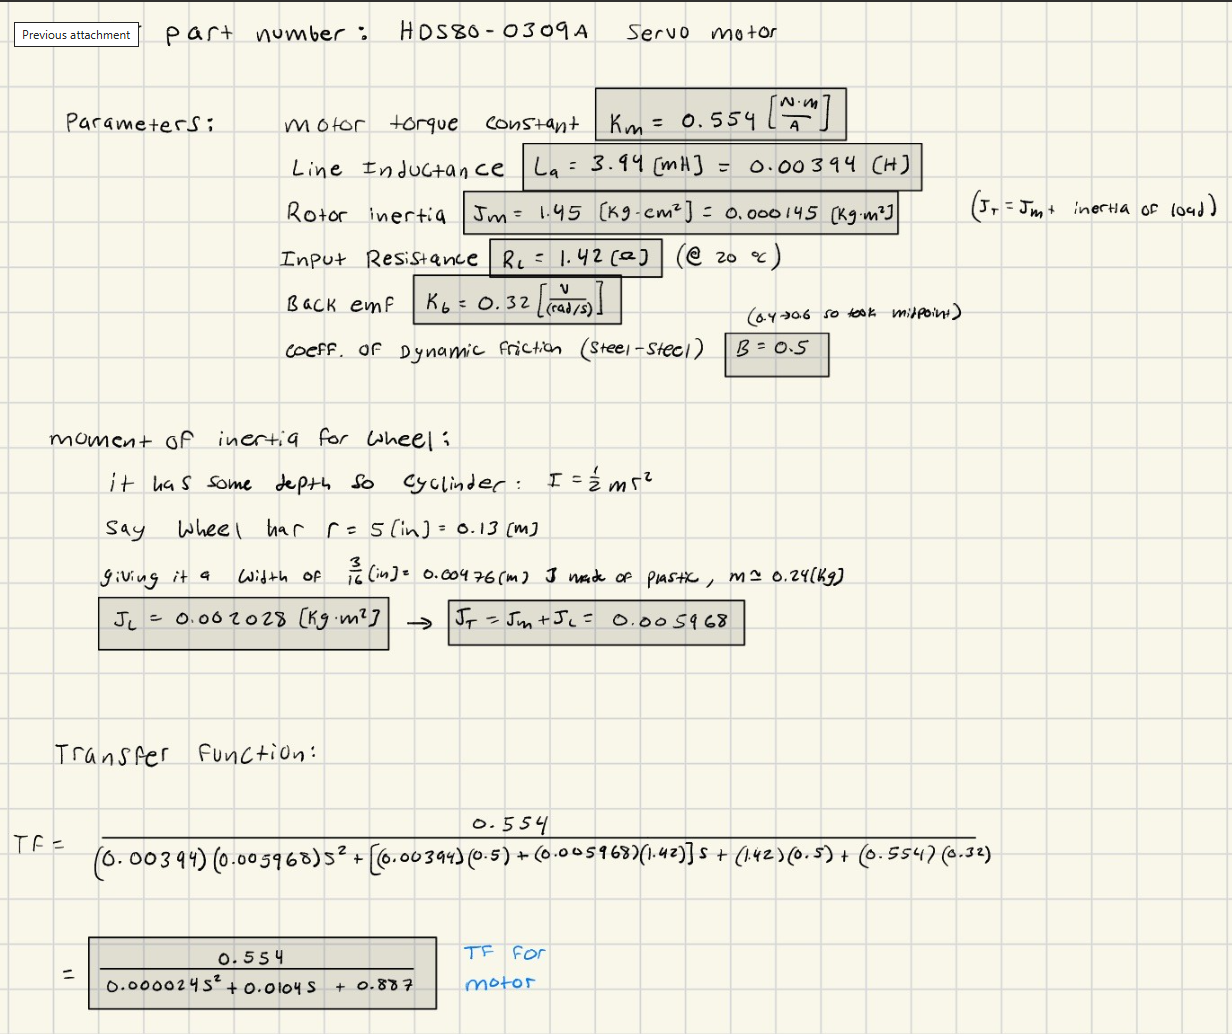 Previous attachment part number: HDS80-0309A Servo motor
Parameters: motor torque constant Km = 0.554 [N·m/A]
Line Inductance La = 3.94 [mH] = 0.00394 [H]
Rotor inertia Jm = 1.45 [Kg·cm²] = 0.000145 [Kg·m²] (JT = Jm + inertia of load)
Input Resistance RL = 1.42 [Ω] (@ 20 °C)
Back emf Kb = 0.32 [V/(rad/s)]
(0.4→0.6 so took midpoint)
coeff. of Dynamic friction (Steel-Steel) B = 0.5
moment of inertia for wheel:
it has some depth so cyclinder: I = ½ mr²
Say wheel has r = 5 [in] = 0.13 [m]
giving it a width of 3/16 [in] = 0.00476 [m] & made of plastic, m ≃ 0.24 [Kg]
JL = 0.002028 [Kg·m²] → JT = Jm + JL = 0.005968
Transfer Function:
TF = 0.554 / (0.00394)(0.005968)s² + [(0.00394)(0.5) + (0.005968)(1.42)]s + (1.42)(0.5) + (0.554)(0.32)
= 0.554 / 0.000024s² + 0.0104s + 0.887 TF for
motor